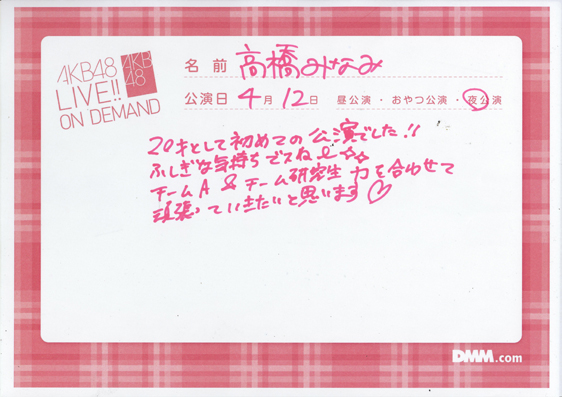 AKB48
LIVE!!
ON DEMAND
AKB
48
名前 高橋みなみ
公演日 4月12日 昼公演・おやつ公演・夜公演
20才として初めての公演でした!!
ふしぎな気持ちですね
チームA & チーム研究生 力を合わせて
頑張っていきたいと思います♡
DMM.com